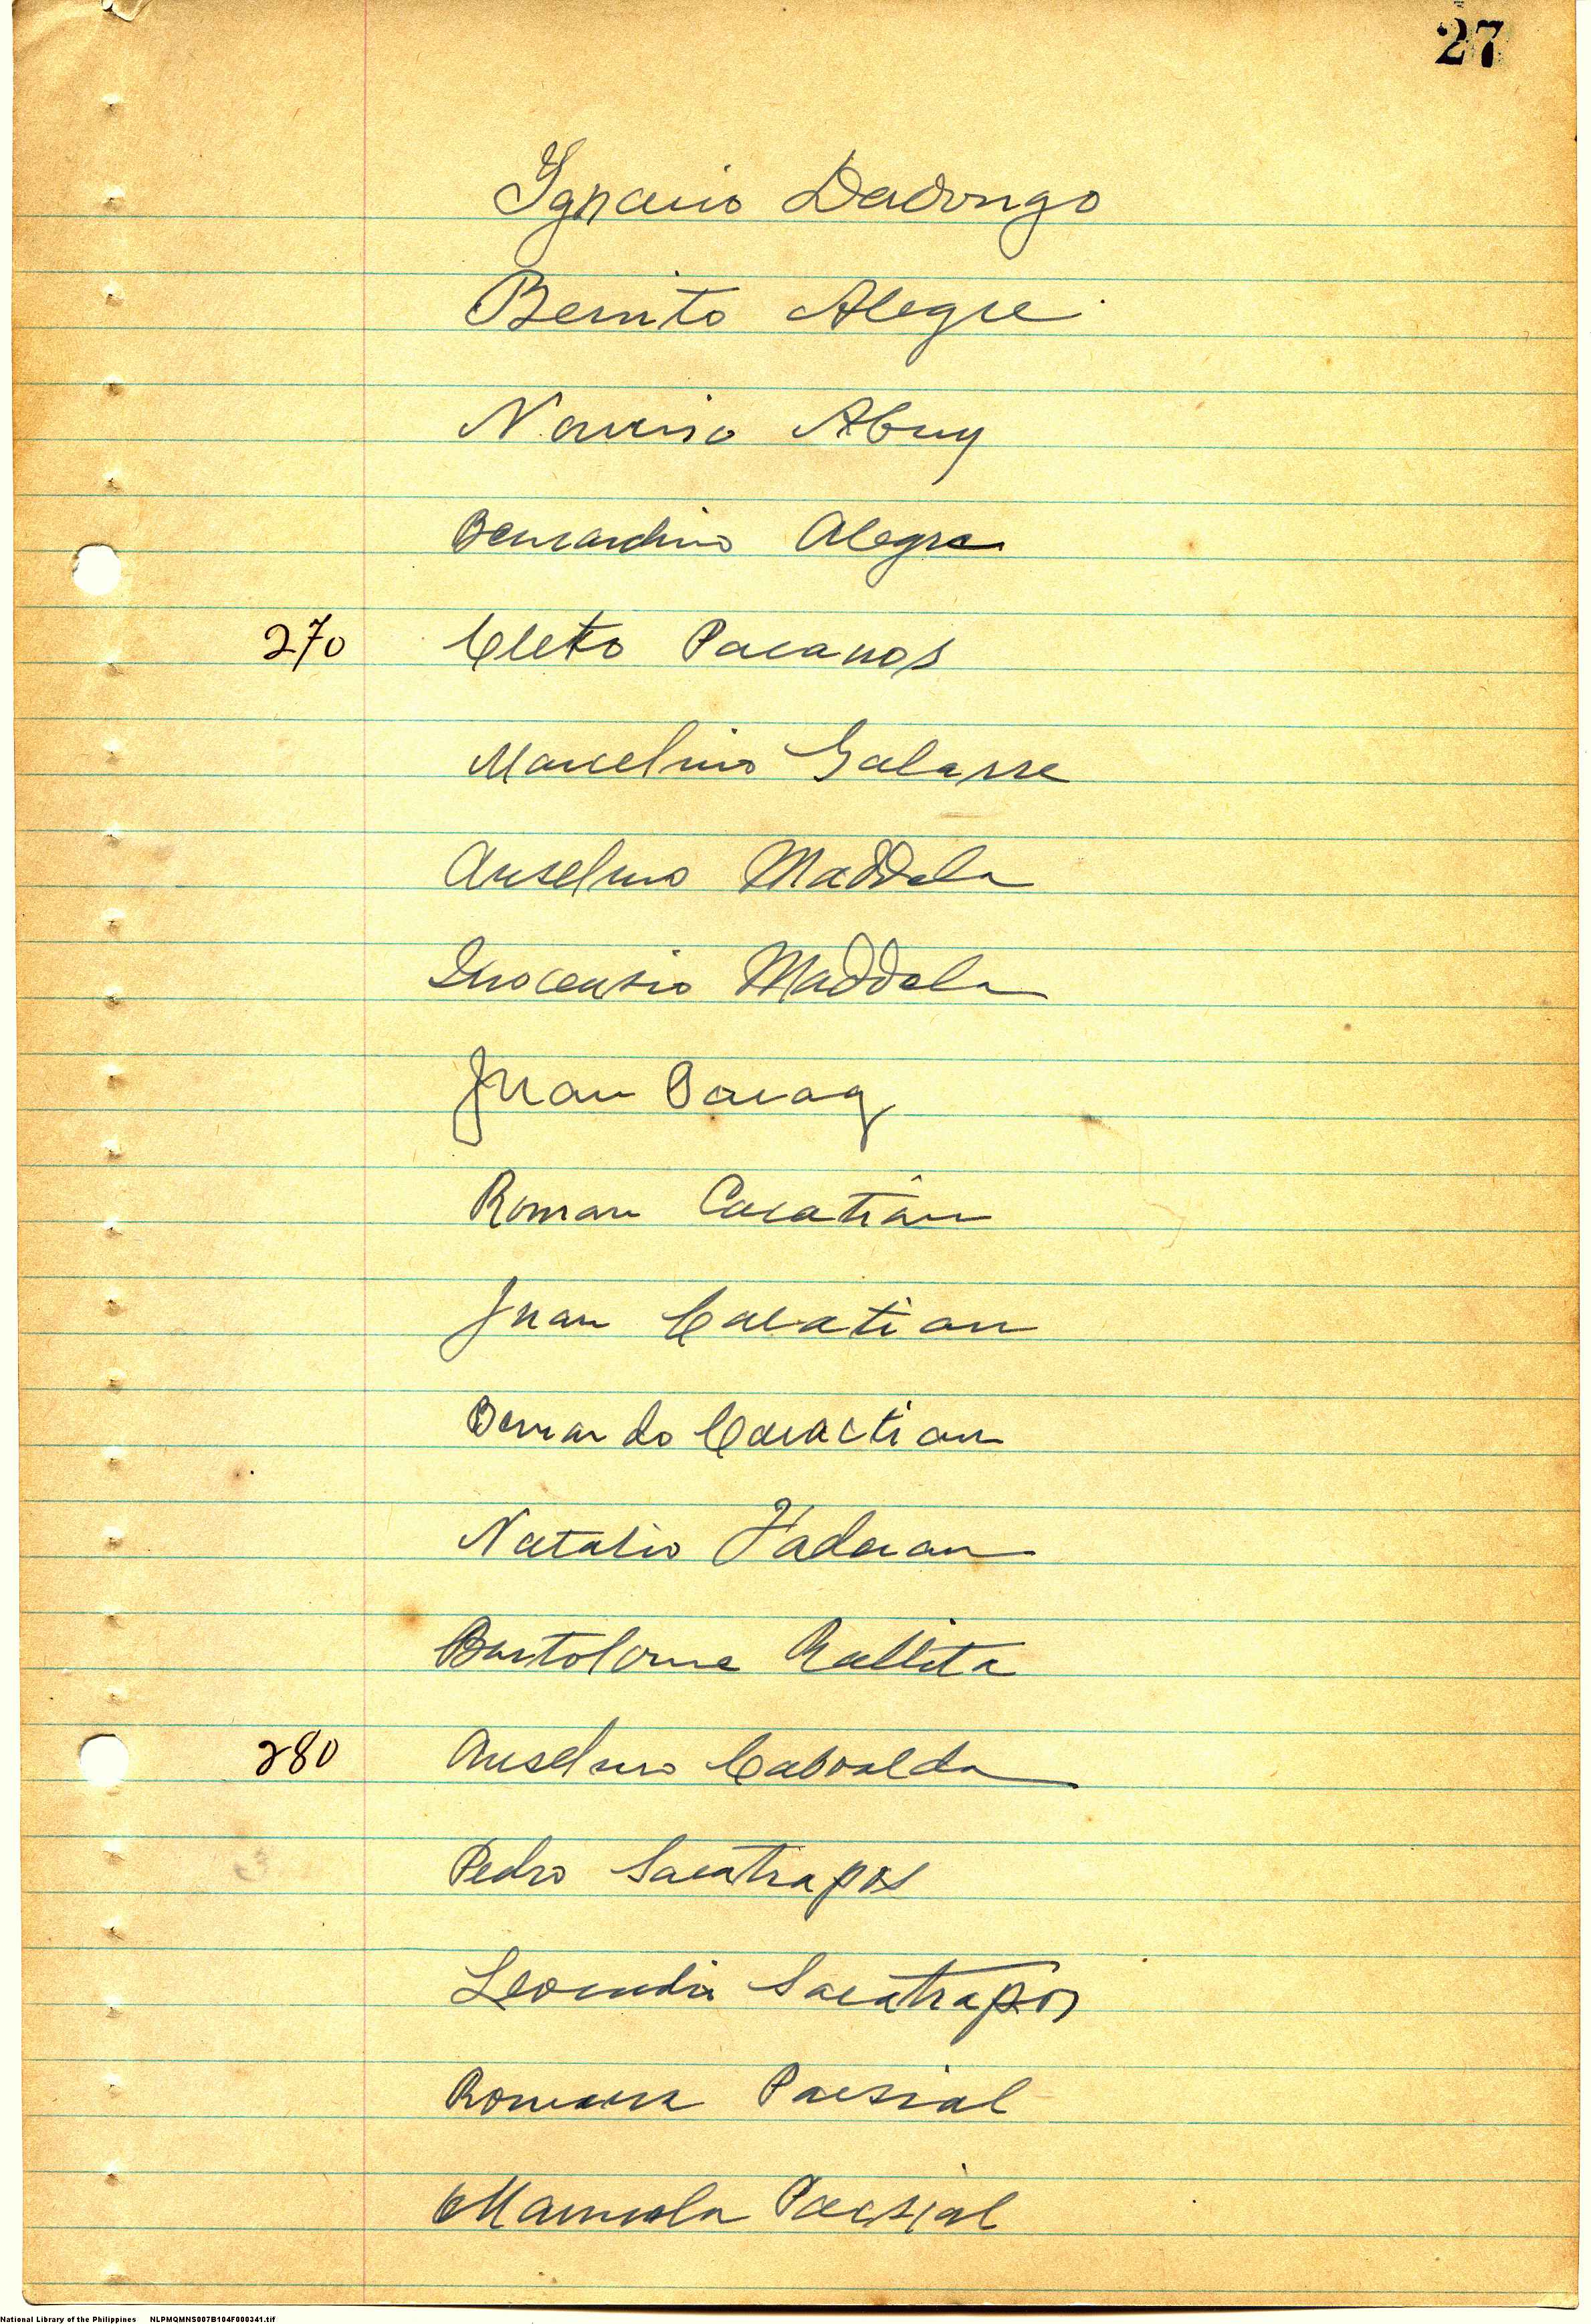 27
Ygnacio Dadongo
Benito Alegre
Narciso Abuy
Bernardino Alegre
270 Cleto Pacanos
Marcelino Galasse
Anselmo Maddela
Inocensio Maddela
Juan Pacag
Roman Cacatian
Juan Cacatian
Bernardo Caractian
Natalio
Bartolome Rallita
280 Anselmo Caboalda
Pedro Sacatrapos
Leocadia Sacatrapos
Romana Pacsial
Manuela Pacsial
National Library of the Philippines NLPMQMNS007B104F000341.tif